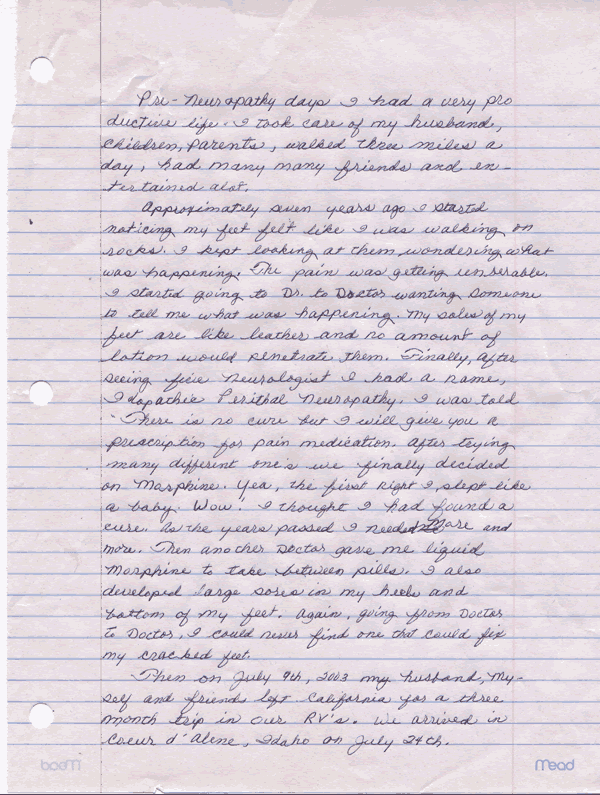 Pre-Neuropathy days I had a very pro
ductive life. I took care of my husband,
children, parents, walked three miles a
day, had many many friends and en-
tertained alot.
Approximately seven years ago I started
noticing my feet felt like I was walking on
rocks. I kept looking at them wondering what
was happening. The pain was getting unberable.
I started going to Dr. to Doctor wanting someone
to tell me what was happening. My soles of my
feet are like leather and no amount of
lotion would penetrate them. Finally, after
seeing five Neurologist I had a name,
Idopathic Perithal Neuropathy. I was told
There is no cure but I will give you a
prescription for pain medication. After trying
many different one's we finally decided
on Morphine. Yea, the first night I, slept like
a baby. Wow. I thought I had found a
cure. As the years passed I needed More and
more. Then another Doctor gave me liquid
Morphine to take between pills. I also
developed large sores in my heels and
bottom of my feet. Again, going from Doctor
to Doctor, I could never find one that could fix
my cracked feet.
Then on July 9th, 2003 my husband, my-
self and friends left California for a three
month trip in our RV's. We arrived in
Coeur d'Alene, Idaho on July 24th.
Mead